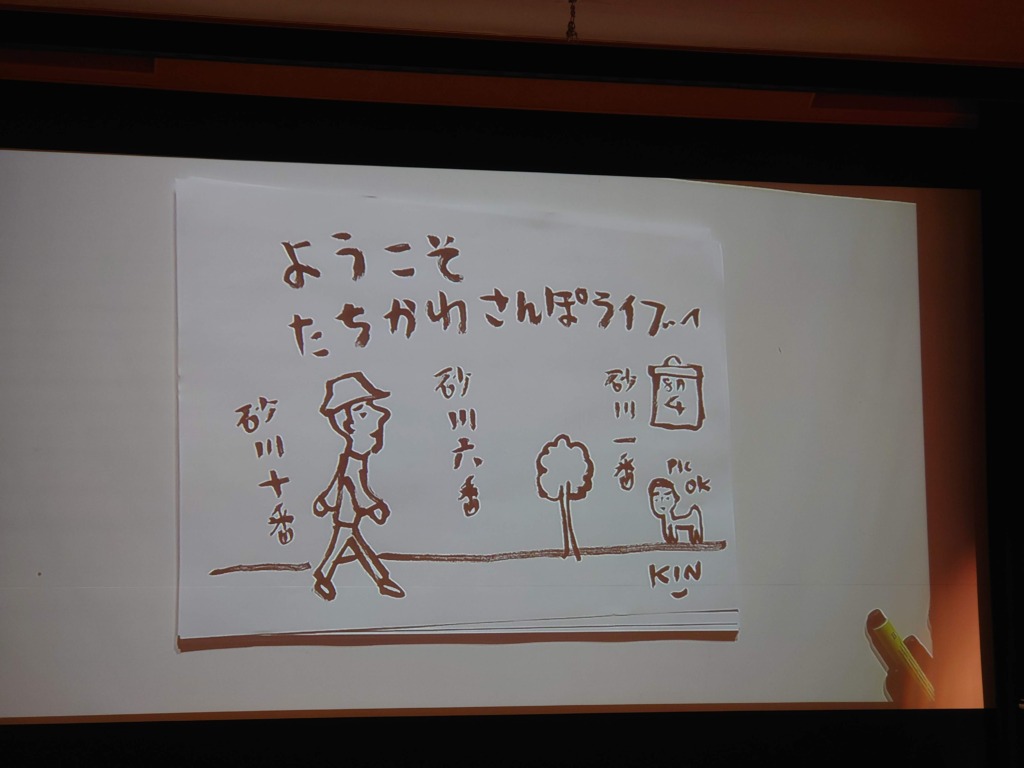 ようこそ
たちかわさんぽライブへ
砂川一番
砂川六番
砂川十番
PIC
OK
KIN